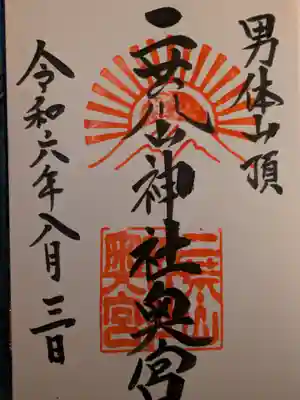 男体山頂
二荒山神社奥宮
二荒山
奥宮
令和六年八月三日